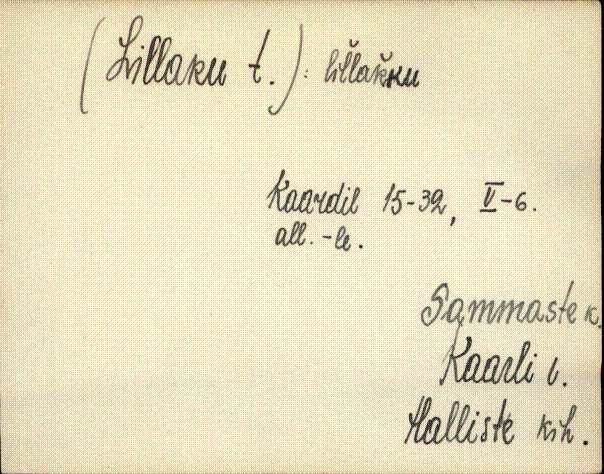 (Lillaku t.): lil̆lak̆ku
Kaardil 15-32, V-6.
all. -le.
Sammaste k.
Kaarli v.
Halliste kih.